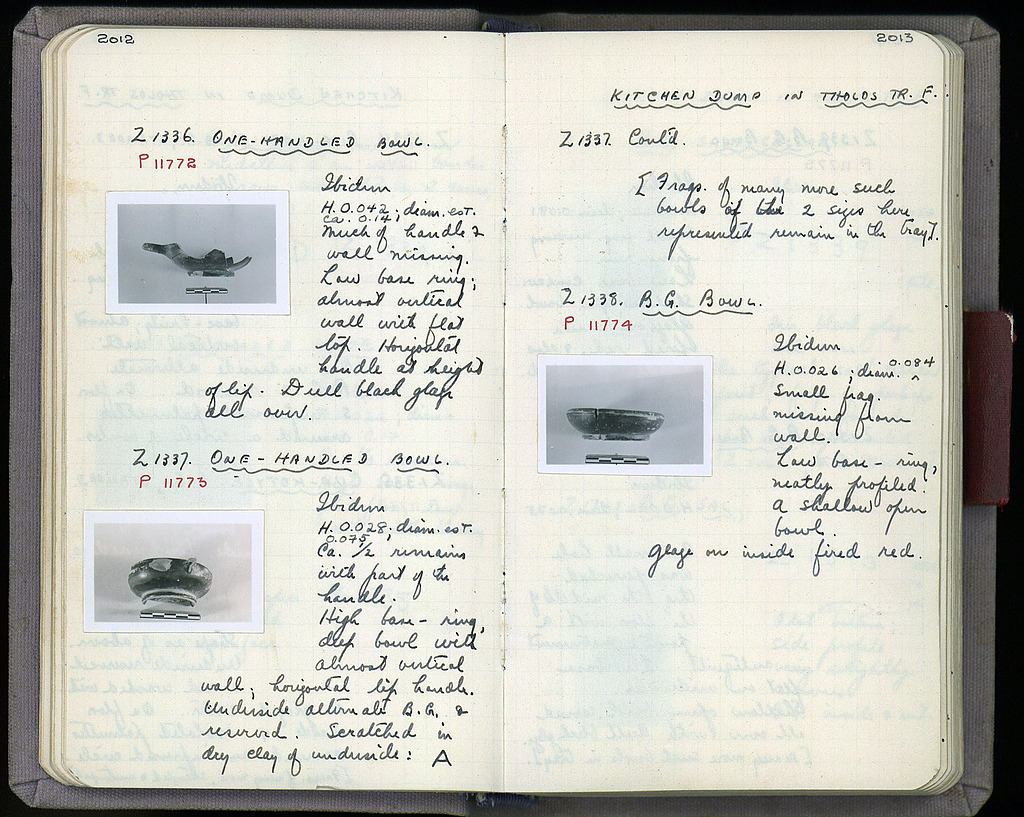 2012
Z 1336. ONE-HANDLED BOWL.
P 11772
Ibidem
H. 0.042; diam. est.
ca. 0.14
Much of handle &
wall missing.
Low base ring;
almost vertical
wall with flat
lip. Horizontal
handle at height
of lip. Dull black glaze
all over.
Z 1337. ONE-HANDLED BOWL.
P 11773
Ibidem
H. 0.028; diam. est.
0.075
Ca. 1/2 remains
with part of the
handle.
High base-ring,
deep bowl with
almost vertical
wall; horizontal lip handle.
Underside alternate B.G. &
reserved. Scratched in
dry clay of underside: A
2013
KITCHEN DUMP IN THOLOS TR. F.
Z 1337. Cont'd.
[Frags. of many more such
bowls of the 2 sizes here
represented remain in the tray].
Z 1338. B.G. BOWL.
P 11774
Ibidem
H. 0.026; diam. 0.084
Small frag.
missing from
wall.
Low base-ring,
neatly profiled.
A shallow open
bowl.
Glaze on inside fired red.